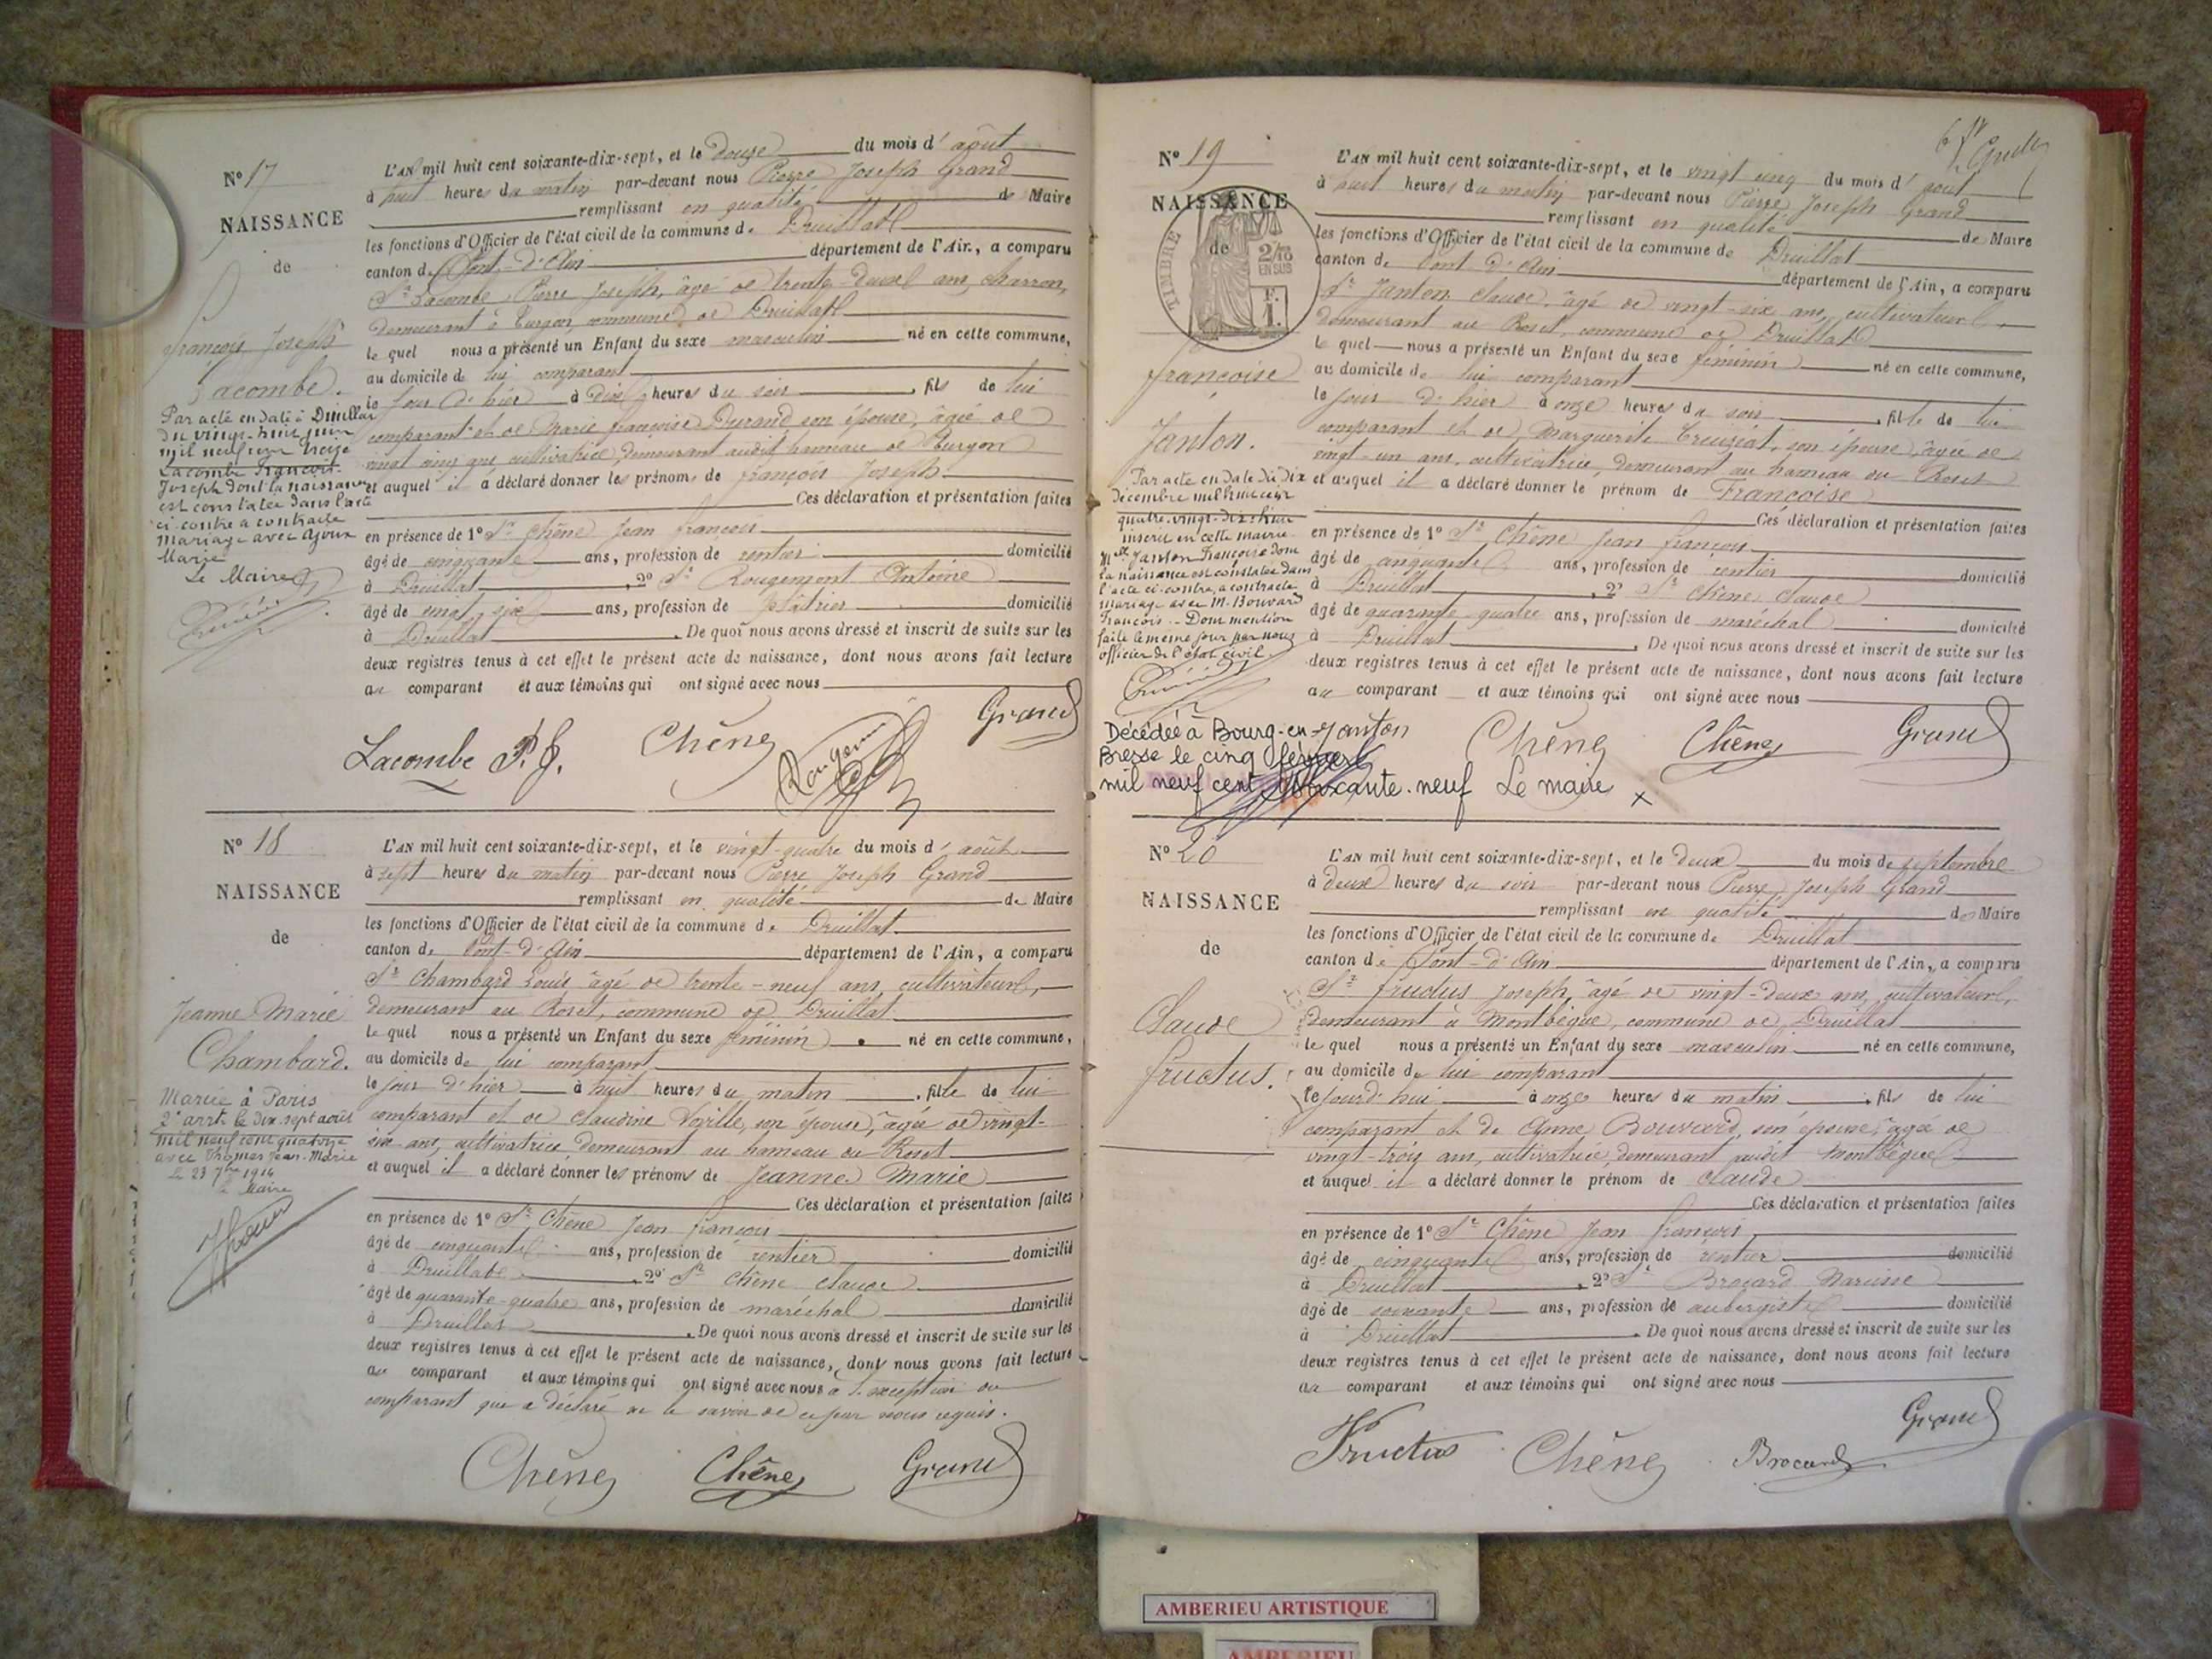 N° 17
NAISSANCE
de
François Joseph
Lacombe.
Par acte en date à Druillat
du vingt-huit juin
mil neuf cent treize
Lacombe François-
Joseph dont la naissance
est constatée dans l'acte
ci-contre a contracté
mariage avec Ajoux
Marie
Le Maire
L'AN mil huit cent soixante-dix-sept, et le douze du mois d'août
à huit heures du matin par-devant nous Pierre Joseph Grand
remplissant en qualité de Maire
les fonctions d'Officier de l'état civil de la commune de Druillat
canton de Pont-d'Ain département de l'Ain, a comparu
Sr Lacombe, Pierre Joseph, âgé de trente-deux ans, charron,
demeurant à Turgon, commune de Druillat
le quel nous a présenté un Enfant du sexe masculin né en cette commune,
au domicile de lui comparant
le jour d'hier à dix heures du soir, fils de lui
comparant et de Marie françoise Durand son épouse, âgée de
vingt cinq ans, cultivatrice, demeurant audit hameau de Turgon
et auquel il a déclaré donner les prénoms de françois Joseph
Ces déclaration et présentation faites
en présence de 1° Sr Chêne Jean françois
âgé de cinquante ans, profession de rentier domicilié
à Druillat, 2° Sr Rougemont Antoine
âgé de vingt six ans, profession de plâtrier domicilié
à Druillat. De quoi nous avons dressé et inscrit de suite sur les
deux registres tenus à cet effet le présent acte de naissance, dont nous avons fait lecture
au comparant et aux témoins qui ont signé avec nous
Lacombe P. J. Chêne Rougemont Grand
N° 18
NAISSANCE
de
Jeanne Marie
Chambard.
Mariée à Paris
2e arrt le dix sept août
mil neuf cent quatorze
avec Thomas Jean-Marie
Le 23 7bre 1914
le Maire
L'AN mil huit cent soixante-dix-sept, et le vingt-quatre du mois d'août
à sept heures du matin par-devant nous Pierre Joseph Grand
remplissant en qualité de Maire
les fonctions d'Officier de l'état civil de la commune de Druillat
canton de Pont-d'Ain département de l'Ain, a comparu
Sr Chambard Louis âgé de trente-neuf ans, cultivateur,
demeurant au Roset, commune de Druillat
le quel nous a présenté un Enfant du sexe féminin né en cette commune,
au domicile de lui comparant
le jour d'hier à huit heures du matin, fille de lui
comparant et de Claudine son épouse, âgée de vingt-
six ans, cultivatrice, demeurant au hameau du Roset
et auquel il a déclaré donner les prénoms de Jeanne Marie
Ces déclaration et présentation faites
en présence de 1° Sr Chêne Jean françois
âgé de cinquante ans, profession de rentier domicilié
à Druillat, 2° Sr Chêne Claude
âgé de quarante-quatre ans, profession de maréchal domicilié
à Druillat. De quoi nous avons dressé et inscrit de suite sur les
deux registres tenus à cet effet le présent acte de naissance, dont nous avons fait lecture
au comparant et aux témoins qui ont signé avec nous à l'exception du
comparant qui a déclaré ne le savoir de ce par nous requis.
Chêne Chêne Grand
N° 19
NAISSANCE
de
TIMBRE
2/10
EN SUS
F.
1.
françoise
Janton.
Par acte en date du dix
décembre mil huit cent
quatre-vingt-dix-huit
inscrit en cette mairie
Mlle Janton Françoise dont
la naissance est constatée dans
l'acte ci-contre, a contracté
mariage avec M. Bouvard
François. Dont mention
faite le même jour par nous
officier de l'état civil
L'AN mil huit cent soixante-dix-sept, et le vingt cinq du mois d'aout
à huit heures du matin par-devant nous Pierre Joseph Grand
remplissant en qualité de Maire
les fonctions d'Officier de l'état civil de la commune de Druillat
canton de Pont-d'Ain département de l'Ain, a comparu
Sr Janton Claude, âgé de vingt-six ans, cultivateur,
demeurant au Roset, commune de Druillat
le quel nous a présenté un Enfant du sexe féminin né en cette commune,
au domicile de lui comparant
le jour d'hier à onze heures du soir, fille de lui
comparant et de Marguerite son épouse, âgée de
vingt-un ans, cultivatrice, demeurant au hameau du Roset
et auquel il a déclaré donner le prénom de Françoise
Ces déclaration et présentation faites
en présence de 1° Sr Chêne Jean françois
âgé de cinquante ans, profession de rentier domicilié
à Druillat, 2° Sr Chêne Claude
âgé de quarante-quatre ans, profession de maréchal domicilié
à Druillat. De quoi nous avons dressé et inscrit de suite sur les
deux registres tenus à cet effet le présent acte de naissance, dont nous avons fait lecture
au comparant et aux témoins qui ont signé avec nous
Janton Chêne Chêne Grand
Décédée à Bourg-en-
Bresse le cinq février
mil neuf cent soixante-neuf Le maire
N° 20
NAISSANCE
de
Claude
fructus.
L'AN mil huit cent soixante-dix-sept, et le deux du mois de septembre
à deux heures du soir par-devant nous Pierre Joseph Grand
remplissant en qualité de Maire
les fonctions d'Officier de l'état civil de la commune de Druillat
canton de Pont-d'Ain département de l'Ain, a comparu
Sr fructus Joseph, âgé de vingt-deux ans, cultivateur,
demeurant à Montbègue, commune de Druillat
le quel nous a présenté un Enfant du sexe masculin né en cette commune,
au domicile de lui comparant
le jourd'hui à onze heures du matin, fils de lui
comparant et de Anne Bouvard, son épouse, âgée de
vingt-trois ans, cultivatrice, demeurant audit Montbègue
et auquel il a déclaré donner le prénom de Claude
Ces déclaration et présentation faites
en présence de 1° Sr Chêne Jean françois,
âgé de cinquante ans, profession de rentier domicilié
à Druillat, 2° Sr Brocard Narcisse
âgé de soixante ans, profession de aubergiste domicilié
à Druillat. De quoi nous avons dressé et inscrit de suite sur les
deux registres tenus à cet effet le présent acte de naissance, dont nous avons fait lecture
au comparant et aux témoins qui ont signé avec nous
Fructus Chêne Brocard Grand
AMBERIEU ARTISTIQUE
AMBERIEU